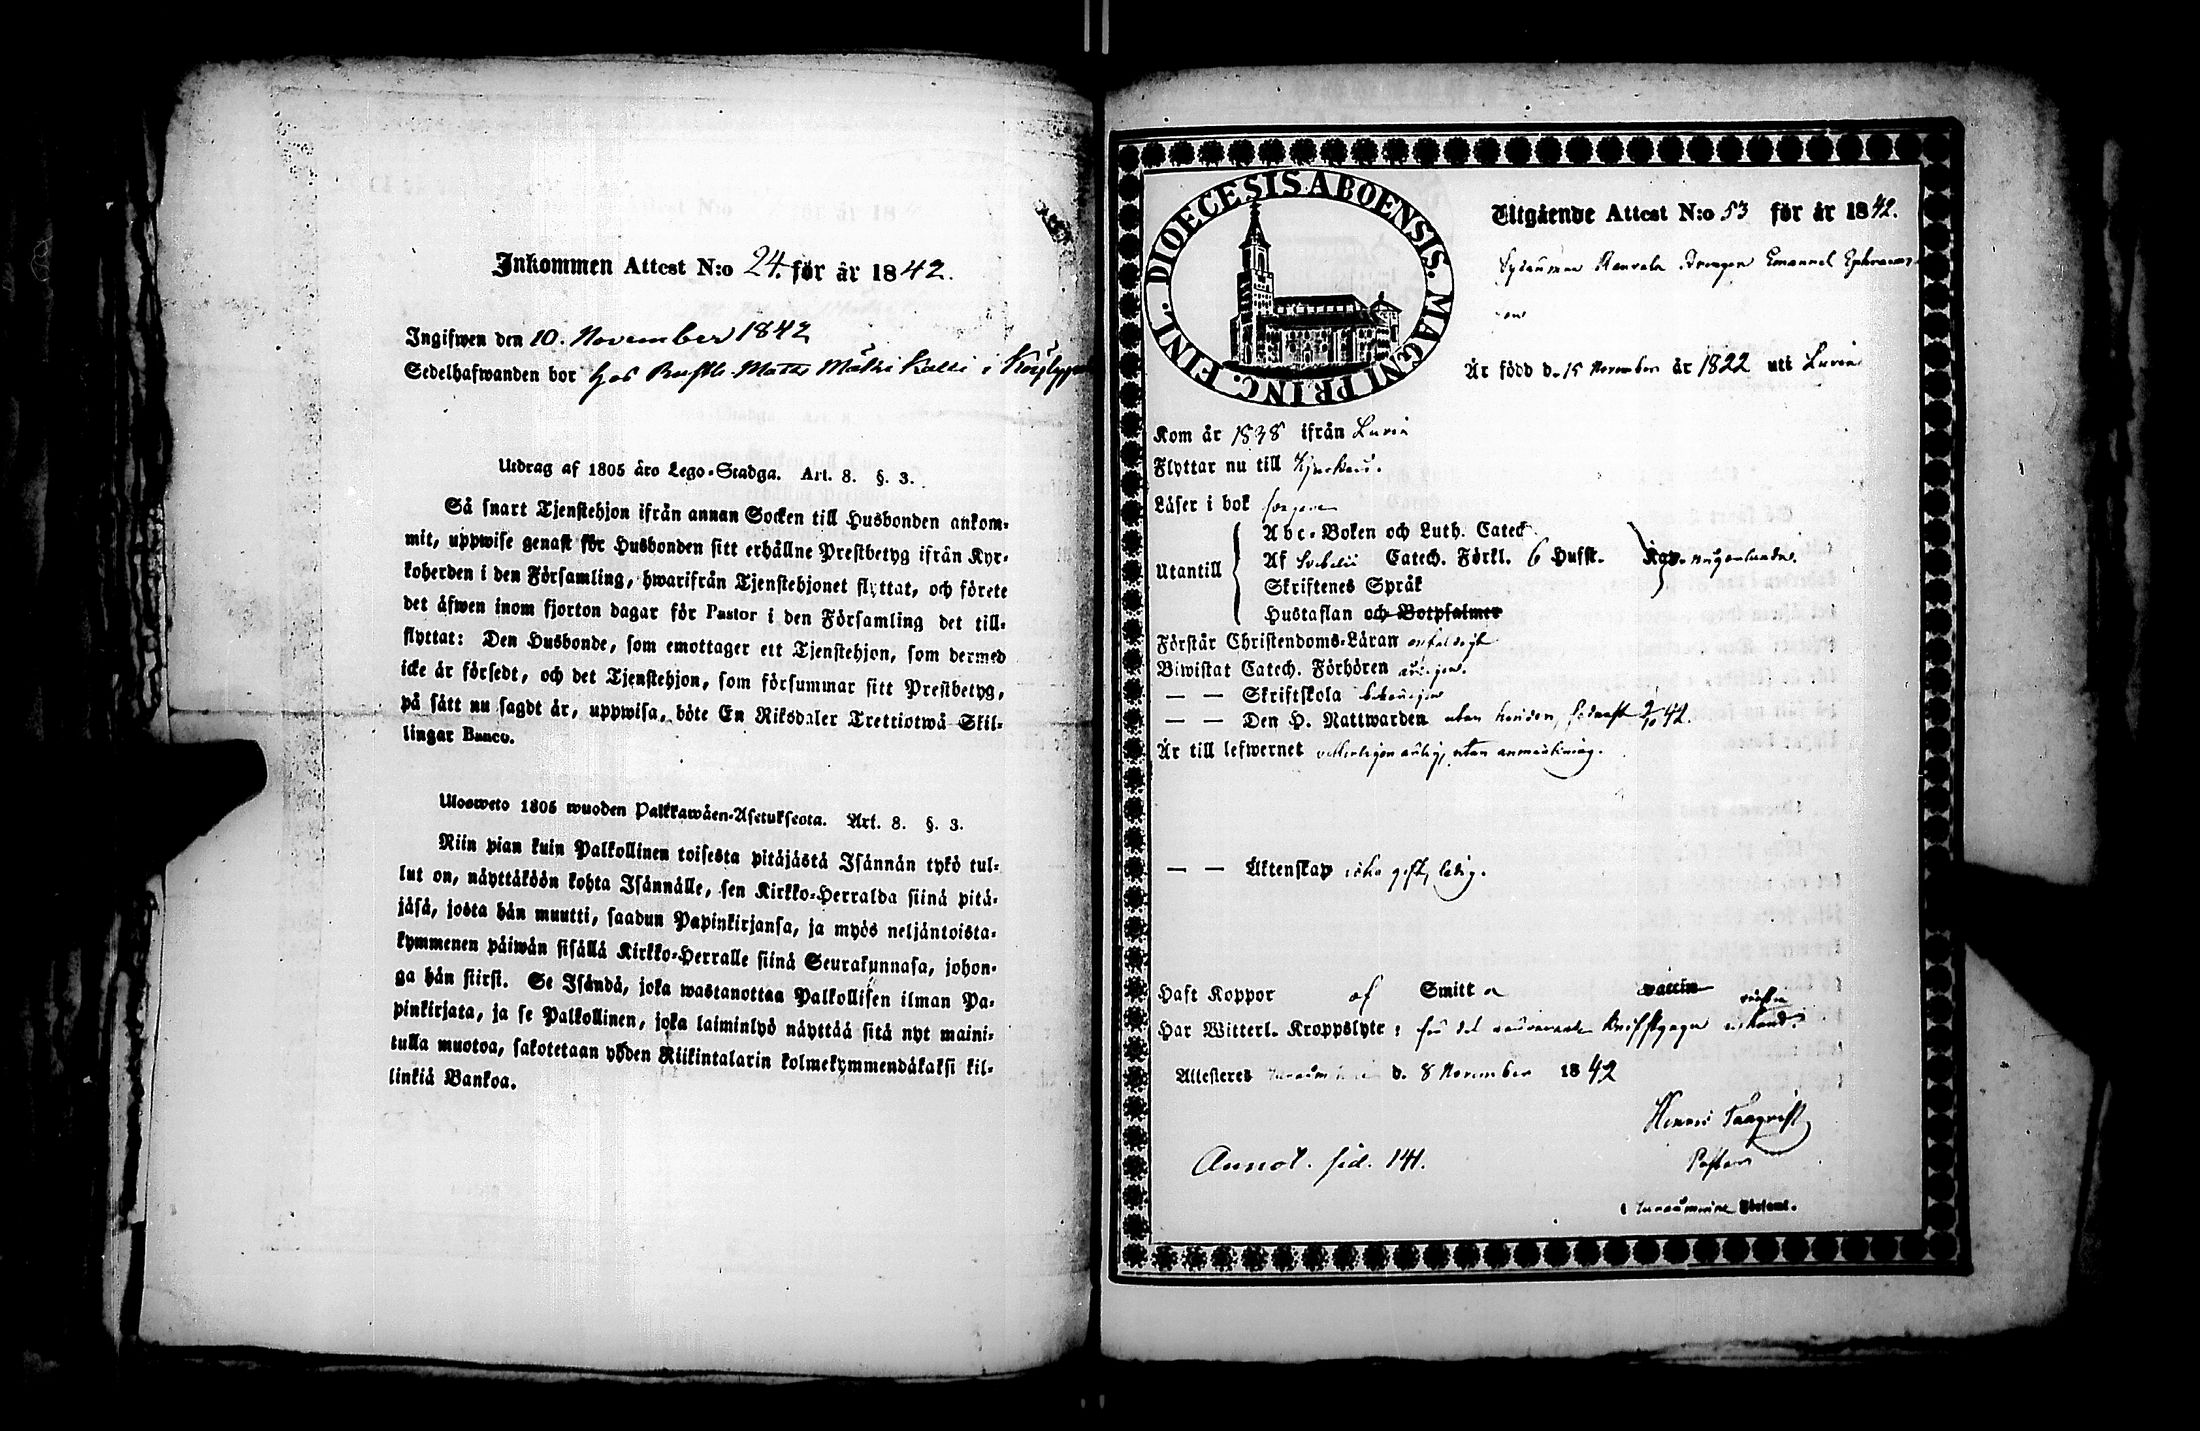 Inkommen Attest N:o 24. för år 1842.
Ingifwen den 10. November 1842
Sedelhafwanden bor hos Matts i
Utdrag af 1805 års Lego-Stadga. Art. 8. §. 3.
Så snart Tjenstehjon ifrån annan Socken till Husbonden ankom-
mit, uppwise genast för Husbonden sitt erhållne Prestbetyg ifrån Kyr-
koherden i den Församling, hwarifrån Tjenstehjonet flyttat, och förete
det äfwen inom fjorton dagar för Pastor i den Församling det till-
flyttat: Den Husbonde, som emottager ett Tjenstehjon, som dermed
icke är försedt, och det Tjenstehjon, som försummar sitt Prestbetyg,
på sätt nu sagdt är, uppwisa, böte En Riksdaler Trettiotwå Skil-
lingar Banco.
Ulosweto 1805 wuoden Palkkawäen-Asetuksesta. Art. 8. §. 3.
Niin pian kuin Palkollinen toisesta pitäjästä Isännän tykö tul-
lut on, näyttäköön kohta Isännälle, sen Kirkko-Herralda siinä pitä-
jäsä, josta hän muutti, saadun Papinkirjansa, ja myös neljäntoista-
kymmenen päiwän sisällä Kirkko-Herralle siinä Seurakunnasa, johon-
ga hän siirsi. Se Isändä, joka wastanottaa Palkollisen ilman Pa-
pinkirjata, ja se Palkollinen, joka laiminlyö näyttää sitä nyt maini-
tulla muotoa, sakotetaan yhden Riikintalarin kolmekymmendäkaksi kil-
linkiä Bankoa.
DIOECESIS ABOENSIS. MAGNI PRINC. FINL.
Utgående Attest N:o 53 för år 1842.
Drengen Emanuel Ephraims-
son
Är född d. 15 November år 1822 uti Luvia
Kom år 1838 ifrån Luvia
Flyttar nu till Kjulois.
Läser i bok
Utantill
Abc-Boken och Luth. Catech.
Af Svebelii Catech. Förkl. 6 Hufst.
Skriftenes Språk
Hustaflan och Botpsalmer
Förstår Christendoms-Läran enfaldigt
Biwistat Catech. Förhören
— — Skriftskola
— — Den H. Nattwarden utan hinder, sednast 2/10 42.
Är till lefwernet utan anmärkning.
— — Äktenskap icke gift, ledig.
Haft Koppor af Smitt vaccin
Har Witterl. Kroppslyte: för det
Attesteres d. 8 November 1842
Pastor
i Församl.
Annot. sid. 141.